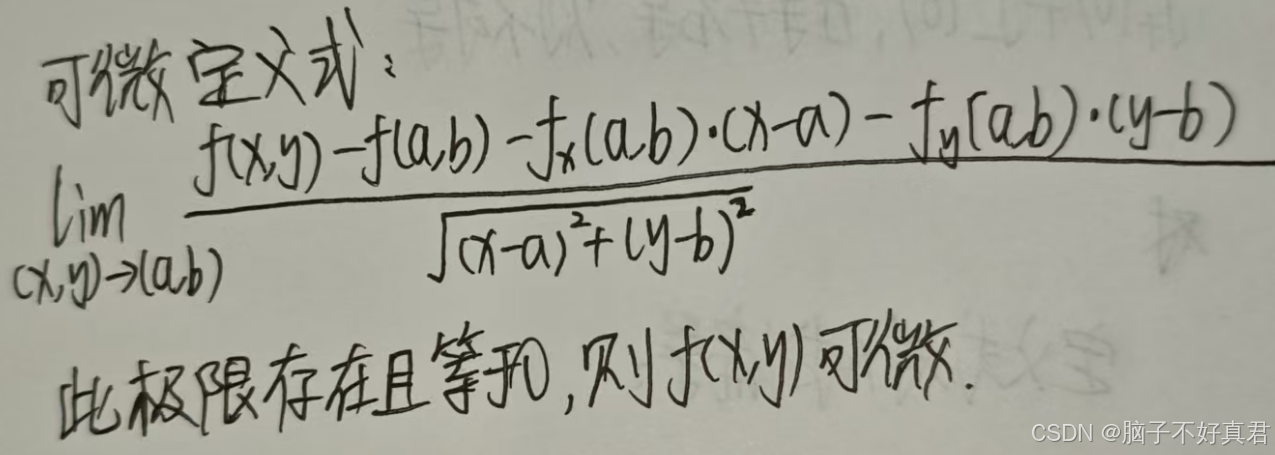 可微定义式：
lim (x,y)→(a,b) f(x,y)-f(a,b)-fx(a,b)·(x-a)-fy(a,b)·(y-b)
√(x-a)²+(y-b)²
此极限存在且等于0,则f(x,y)可微.
CSDN @脑子不好真君